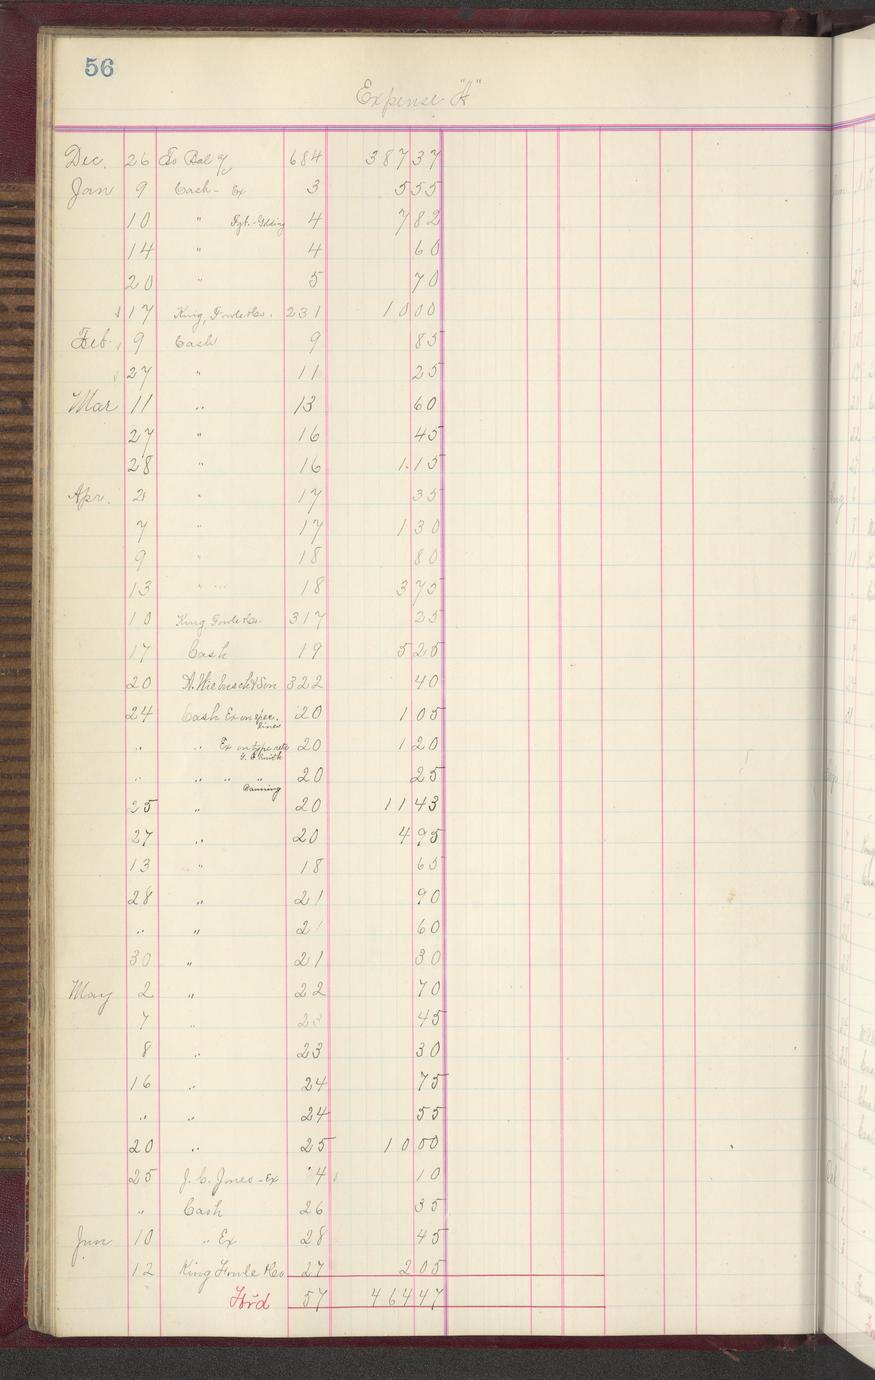 56
Expense "A"
Dec. 26 To Bal 9/ 684 387 37
Jan 9 Cash - Ex 3 5 55
10 " Fgt. - 4 7 82
14 " 4 60
20 " 5 70
17 King, Fowle & Co. 231 10 00
Feb. 9 Cash 9 85
27 " 11 25
Mar 11 " 13 60
27 " 16 45
28 " 16 1.15
Apr. 2 " 17 35
7 " 17 1 30
9 " 18 80
13 " 18 3 75
10 King, Fowle & Co. 317 25
17 Cash 19 5 25
20 A. Wiebusch & Son 322 40
24 Cash Ex on spec. lines 20 1 05
" " Ex on type retd 20 1 20
G. E. Smith
" " " " 20 25
Banning
25 " 20 11 43
27 " 20 4 95
13 " 18 65
28 " 21 90
" " 21 60
30 " 21 30
May 2 " 22 70
7 " 23 45
8 " 23 30
16 " 24 75
" " 24 55
20 " 25 10 00
25 J. C. Jones - Ex 4 10
" Cash 26 35
Jun 10 " Ex 28 45
12 King Fowle & Co 27 2 05
Ford 57 464 47